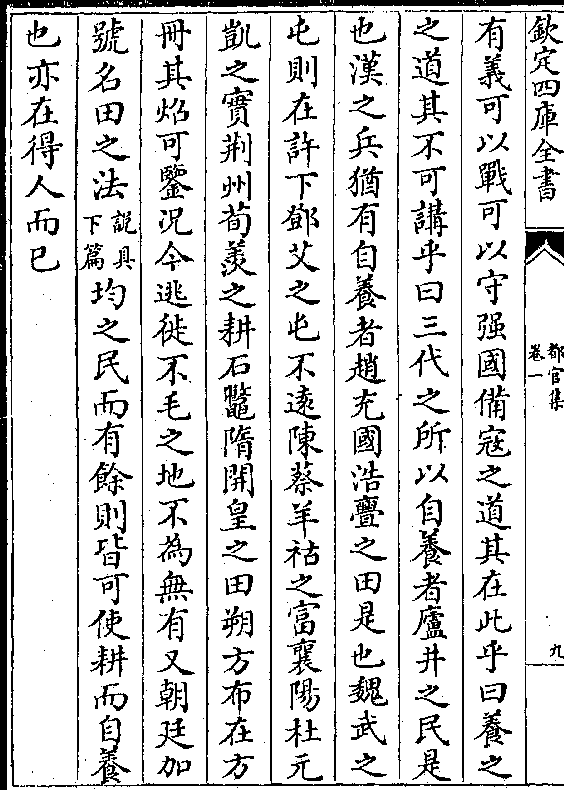 欽定四庫全書
都官集
卷一
九
有義可以戰可以守强國備寇之道其在此乎曰養之
之道其不可講乎曰三代之所以自養者廬井之民是
也漢之兵猶有自養者趙充國浩亹之田是也魏武之
屯則在許下鄧艾之屯不逺陳蔡羊祜之富襄陽杜元
凱之實荆州荀羨之耕石鼈隋開皇之田朔方布在方
冊其炤可鑒况今逃徙不毛之地不為無有又朝廷加
號名田之法說具下篇均之民而有餘則皆可使耕而自養
也亦在得人而已